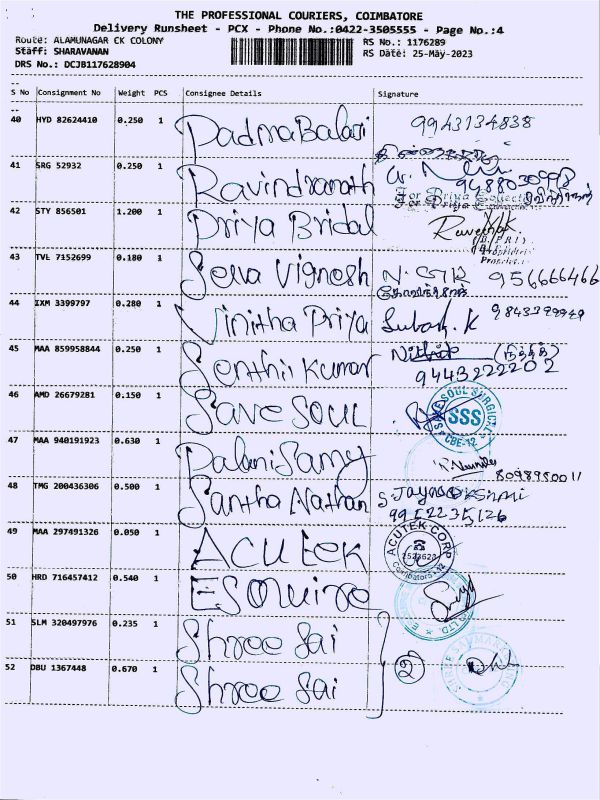 THE PROFESSIONAL COURIERS, COIMBATORE
Delivery Runsheet - PCX - Phone No.:0422-3505555 - Page No.:4
Route: ALAMUNAGAR CK COLONY RS No.: 1176289
Staff: SHARAVANAN RS Date: 25-May-2023
DRS No.: DCJB117628904
S No Consignment No Weight PCS Consignee Details Signature
40 HYD 82624410 0.250 1 Padma Balaji 9943134838
41 SRG 52932 0.250 1 Ravindranath 9488030998
42 STY 856501 1.200 1 Priya Bridal
43 TVL 7152699 0.180 1 Selva Vignesh 956666466
44 IXM 3399797 0.280 1 Vinitha Priya Subash. K 9843399949
45 MAA 859958844 0.250 1 Senthil Kumar
9443222202
46 AMD 26679281 0.150 1 Save SOUL SSS CBE-12
47 MAA 940191923 0.630 1 Palani Samy 8098980011
48 TMG 200436306 0.500 1 Santha Nathan S. Jayalakshmi
9952235126
49 MAA 297491326 0.050 1 ACUTEK ACUTEK CORP
50 HRD 716457412 0.540 1 ESQUIRE
51 SLM 320497976 0.235 1 Shree Sai
52 DBU 1367448 0.670 1 Shree Sai 2